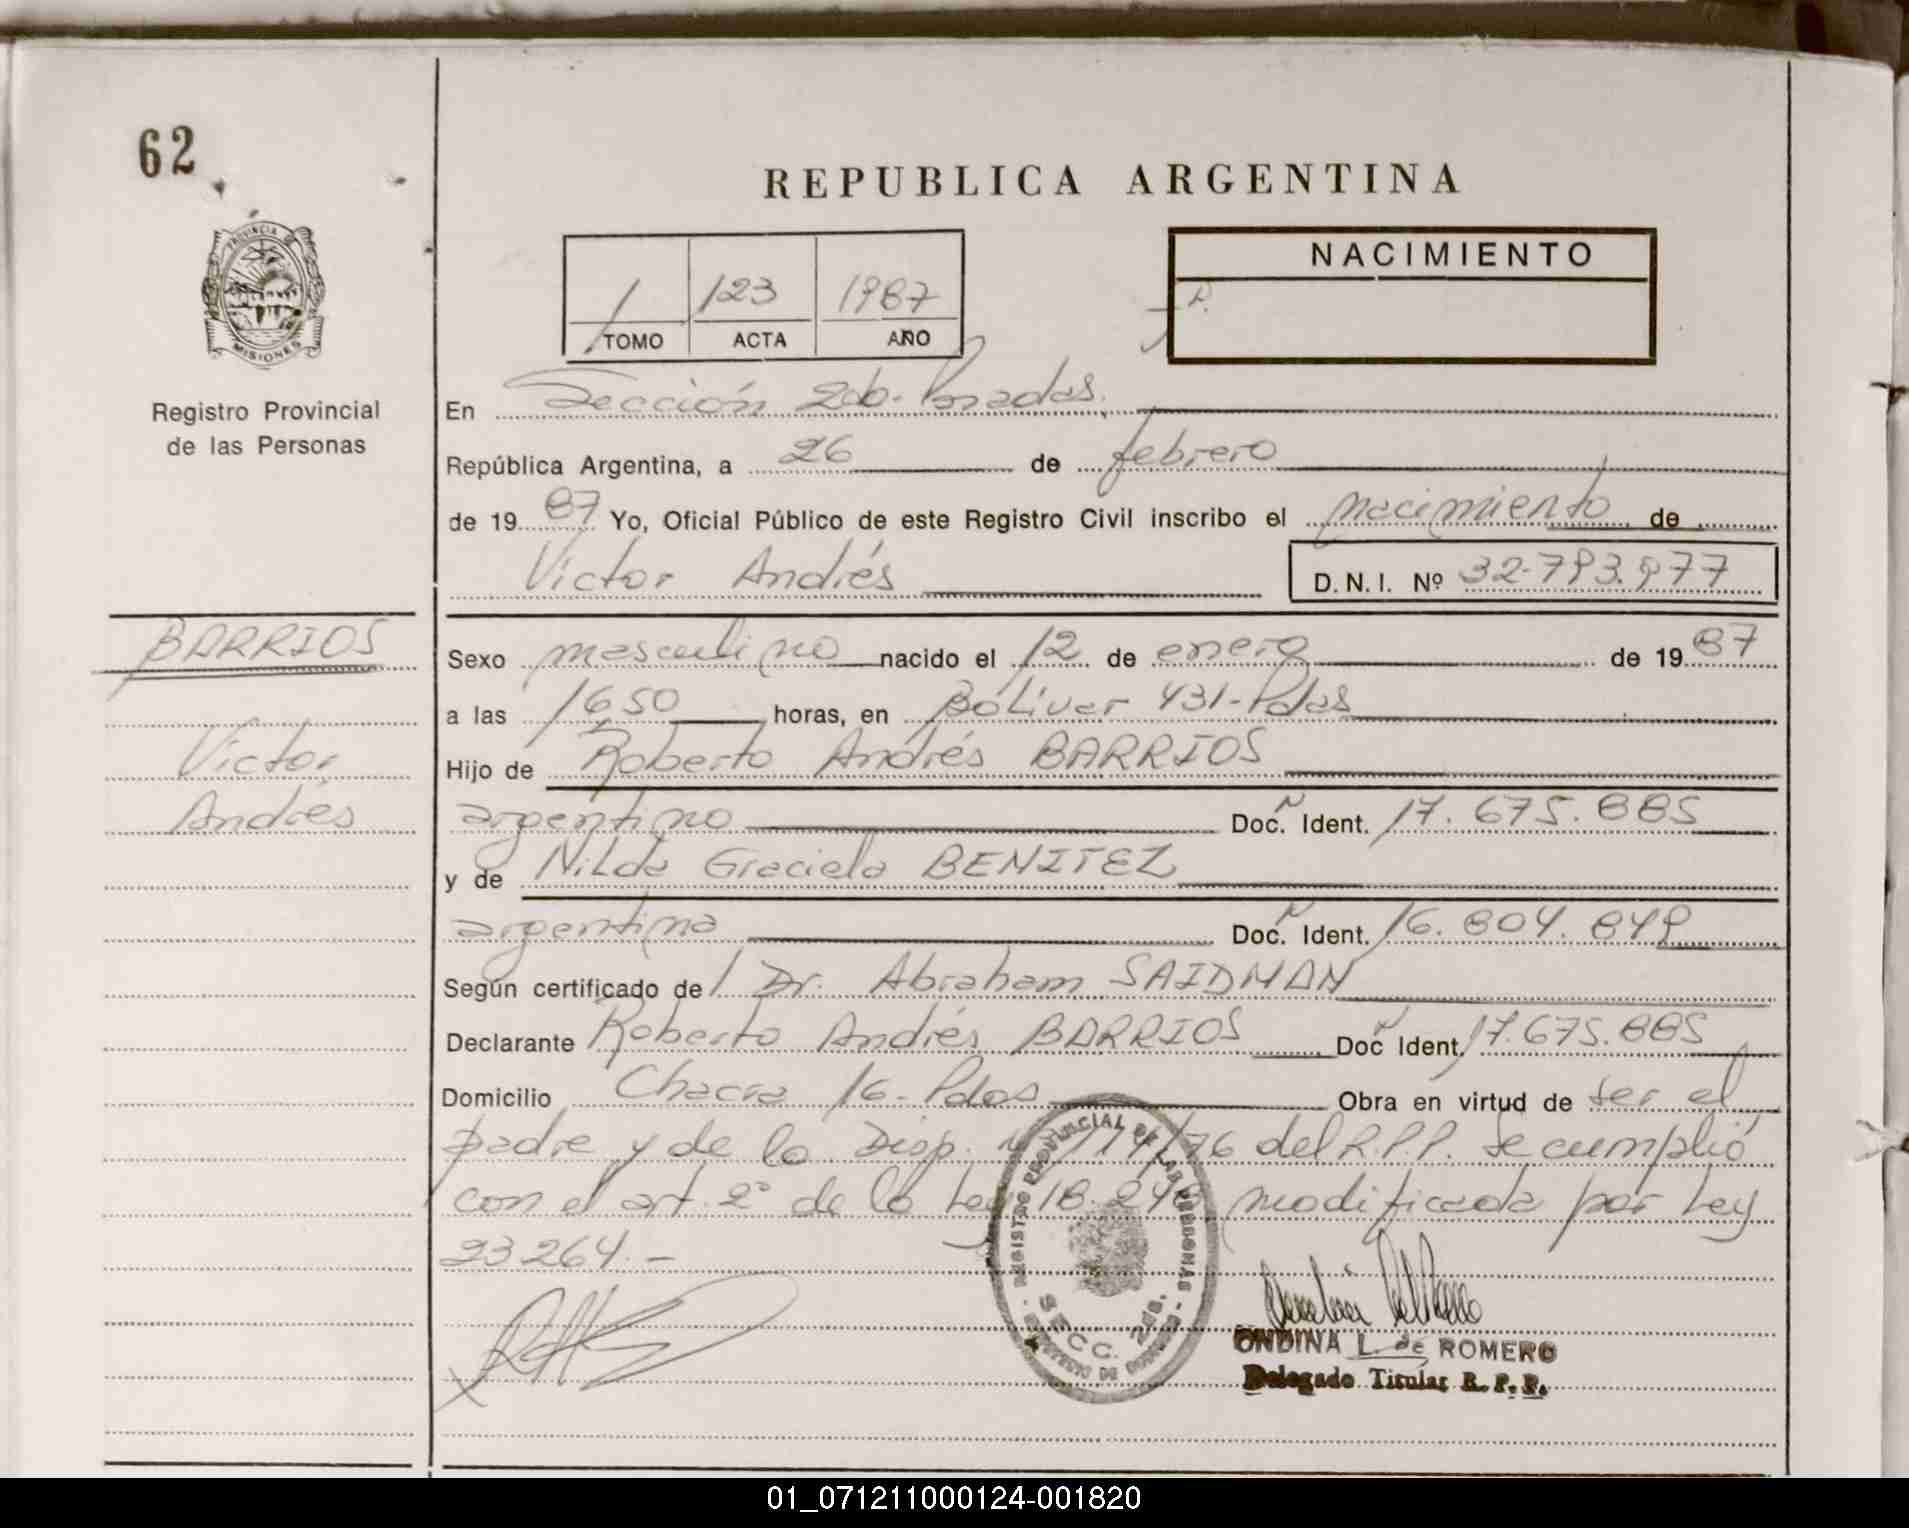 62
REPUBLICA ARGENTINA
PROVINCIA DE
MISIONES
Registro Provincial
de las Personas
1 123 1987
TOMO ACTA AÑO
NACIMIENTO
En Sección 2da. Posadas.
República Argentina, a 26 de febrero
de 1987 Yo, Oficial Público de este Registro Civil inscribo el nacimiento de
Víctor Andrés D.N.I. Nº 32.793.977
BARRIOS
Víctor
Andrés
Sexo masculino nacido el 12 de enero de 1987
a las 1650 horas, en Bolívar 431-Pdas
Hijo de Roberto Andrés BARRIOS
argentino Doc. Ident. 17.675.885
y de Nilda Graciela BENITEZ
argentina Doc. Ident. 16.804.849
Según certificado de Dr. Abraham SAIDMAN
Declarante Roberto Andrés BARRIOS Doc Ident. 17.675.885
Domicilio Chacra 16-Pdas Obra en virtud de ser el
padre y de la Disp. /76 del R.P.P. Se cumplió
con el art. 2º de la Ley 18.248 modificada por Ley
23264.-
REGISTRO PROVINCIAL DE LAS PERSONAS
SECC. 2da.
ONDINA L. de ROMERO
Delegado Titular R. P. P.
01_071211000124-001820